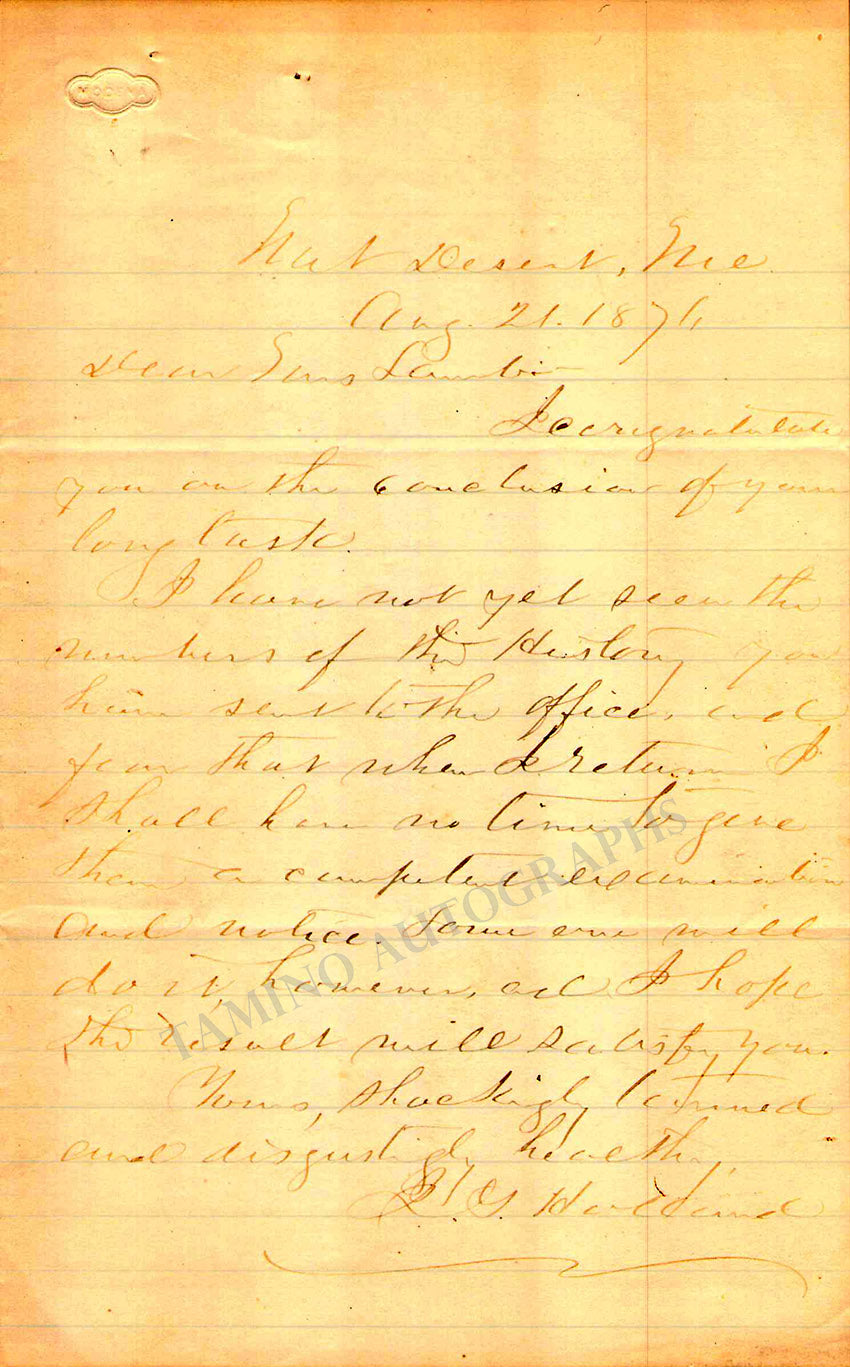 MODENA
Mt Desert, Me
Aug. 21. 1876
Dear Mrs Lamb:
I congratulate
you on the conclusion of your
long task.
I have not yet seen the
numbers of the History you
have sent to the office, and
fear that when I return I
shall have no time to give
them a competent examination
and notice. Some one will
do it, however, and I hope
the result will satisfy you.
Yours, shockingly tanned
and disgustingly healthy,
J. G. Holland
TAMINO AUTOGRAPHS